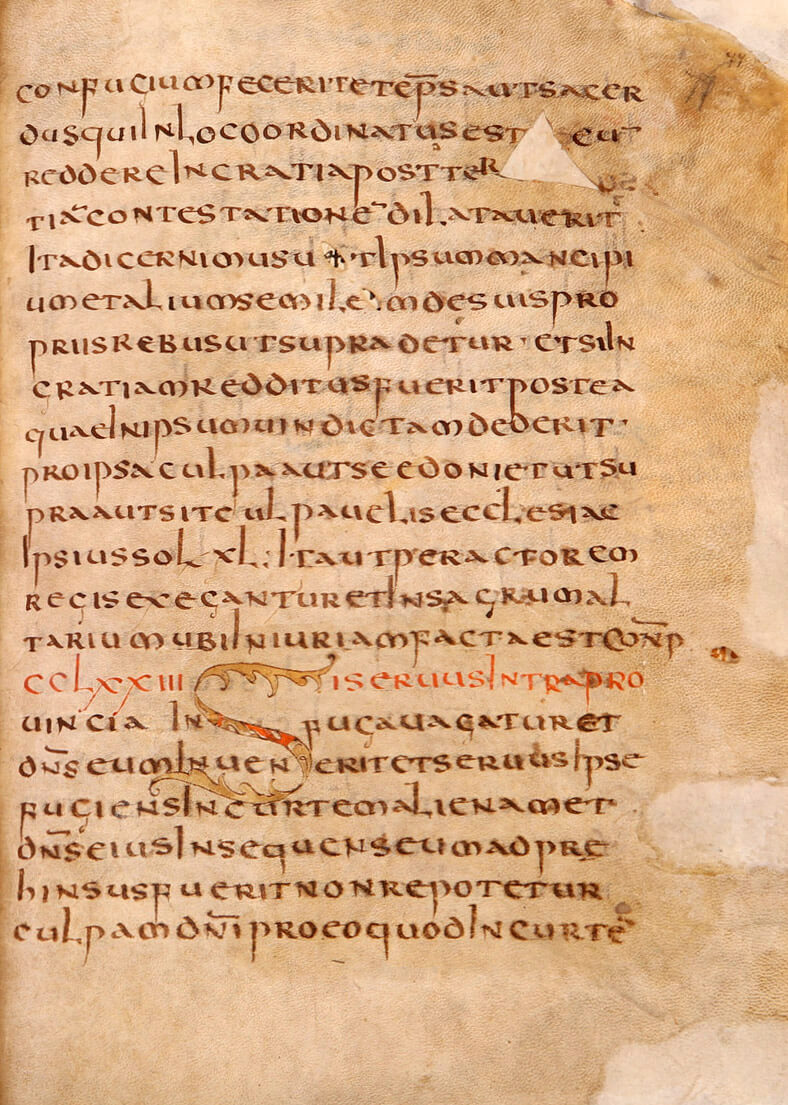 confugium feceritet ep̄s aut sacer
dus qui in loco ordinatus est eut
reddere in gratia post ter
tiā contestationē dilataverit
ita dicernimus ut ipsum mancipi
um et alium semile mdesuis pro
priis rebus ut supra detur · et si in
gratiam redditus fuerit postea
quae in ipsum uindictam dederit ·
pro ipsa culpa aut se edoniet ut su
pra aut si te ulpauelis ecclesiae
ipsius sol xl: ita ut per actorem
regis exegantur et in sagrum al
tarium ubi iniuriam facta est conp̄
CCLXXIII Si seruus intra pro
uincia in fuga uagatur et
dn̄s eum inuenerit et seruus ipse
fugiens in curtem alienam et ·
dn̄s eius insequens eum adpre
hinsus fuerit non repotetur
culpam dn̄i pro eo quod in curtē